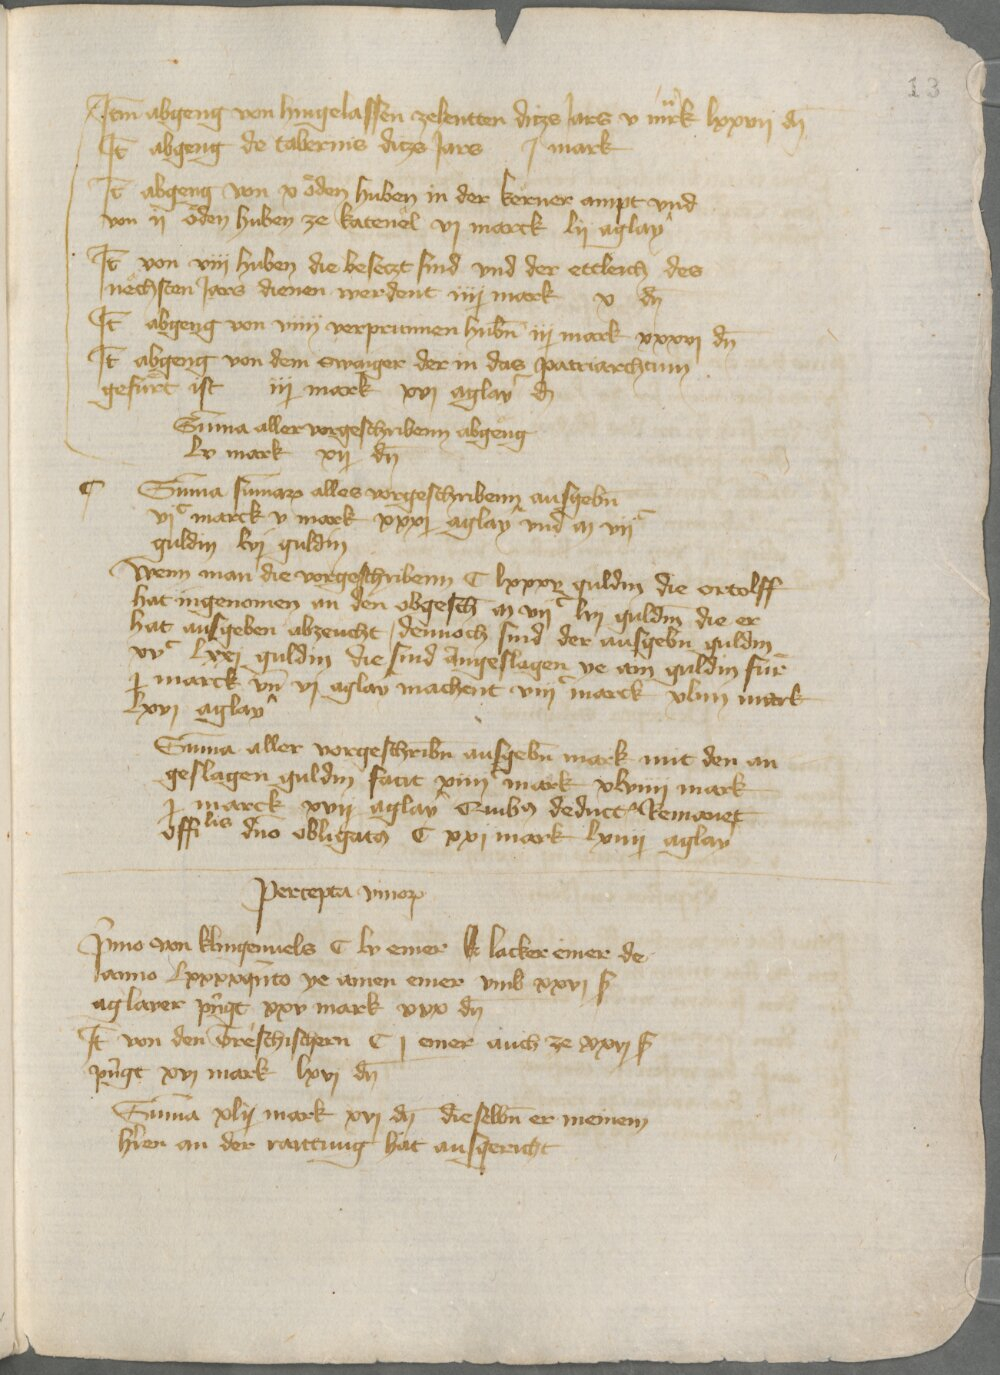 13
Itm̄ abgeng von hingelassen zelentten ditzs Jars v mr̄k lxxvij dn̄
It̄ abgeng de tabernis ditzs Jars j mark
It̄ abgeng von x öden huben in der kerner ampt vnd
von ij öden huben ze katenël vj marck lij aglay̑
It̄ von viij huben die besetzt sind vnd der ettleich des
nëchsten Jars dienen werdent iiij mark x dn̄
It̄ abgeng von viiij verprunnen hubn̄ iij mark xxxvj dn̄
It̄ abgeng von dem swaiger der in das patriarchtum
gefürt ist iij mark xvj aglay̑ dn̄
Sum̄a aller vorgeschribenn abgeng
Lv mark xij dn̄
Sum̄a sum̄arꝝ alles vorgeschribenn ausgebn̄
vjᶜ marck v mark xxxj aglay̑ vnd m vijᶜ
guldin lvj guldin
Wenn man die vorgeschribenn C lxxxv guldin die ortolff
hat ingenomen an den obgesch̄ m vijᶜ lvj guldin die er
hat ausgeben abzeucht / dennoch sind der ausgebn̄ guldin
xvᶜ Lxxj guldin die sind angeslagen ye ain guldin für
j marck vn̄ vj aglay̑ machent viijᶜ marck xliiij mark
Lxvj aglay̑
Sum̄a aller vorgeschribn̄ ausgebn̄ mark mit den an
geslagen guldin facit xiiijᶜ mark xlviiij mark
j marck xvij aglay̑ Quibꝫ deductꝭ Remanet
Offilis dn̄o obligatꝫ C xxj mark Lxiiij aglay̑
Percepta vinorꝝ
P̄mo von klingenuels C lv emer lacker emer de
anno Lxxxxqn̄to ye ainen emer vmb xxvj ß
aglayer prīgt xxv mark xxx dn̄
It̄ von den Treschischern C j emer auch ze xxvj ß
prīgt xvj mark lxvj dn̄
Sum̄a xlij mark xvj dn̄ dieselbn̄ er meinem
hr̄en an der raittung hat ausgericht